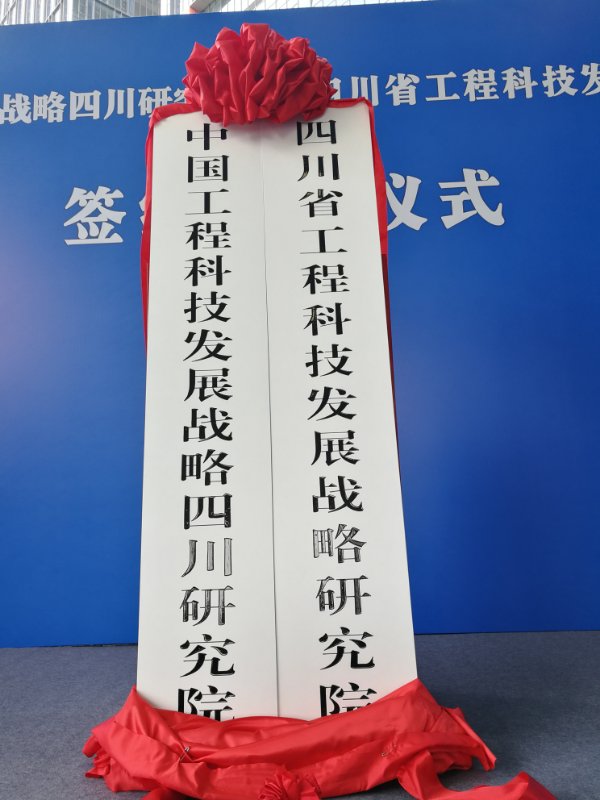 战略四川研
川省工程科技发
签
仪式
四川省工程科技发展战略研究院
中国工程科技发展战略四川研究院